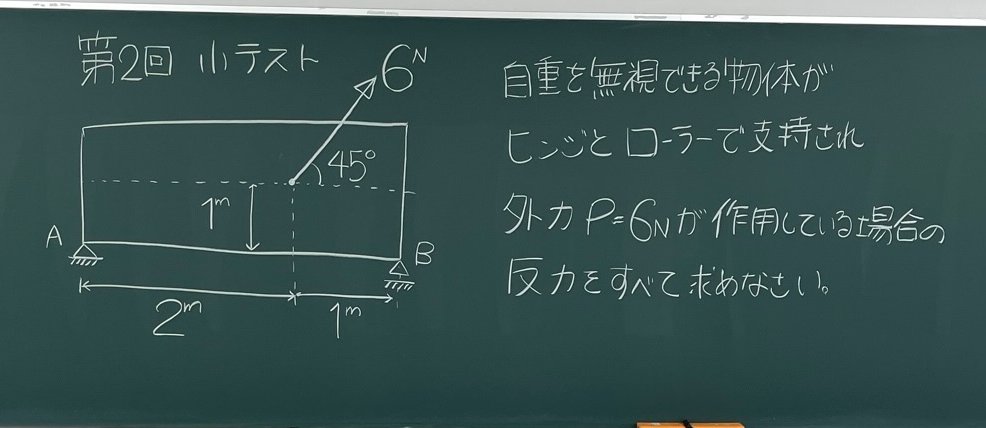 第2回 小テスト
6N
45°
1m
A
B
2m
1m
自重を無視できる物体が
ヒンジとローラーで支持され
外力P=6Nが作用している場合の
反力をすべて求めなさい。